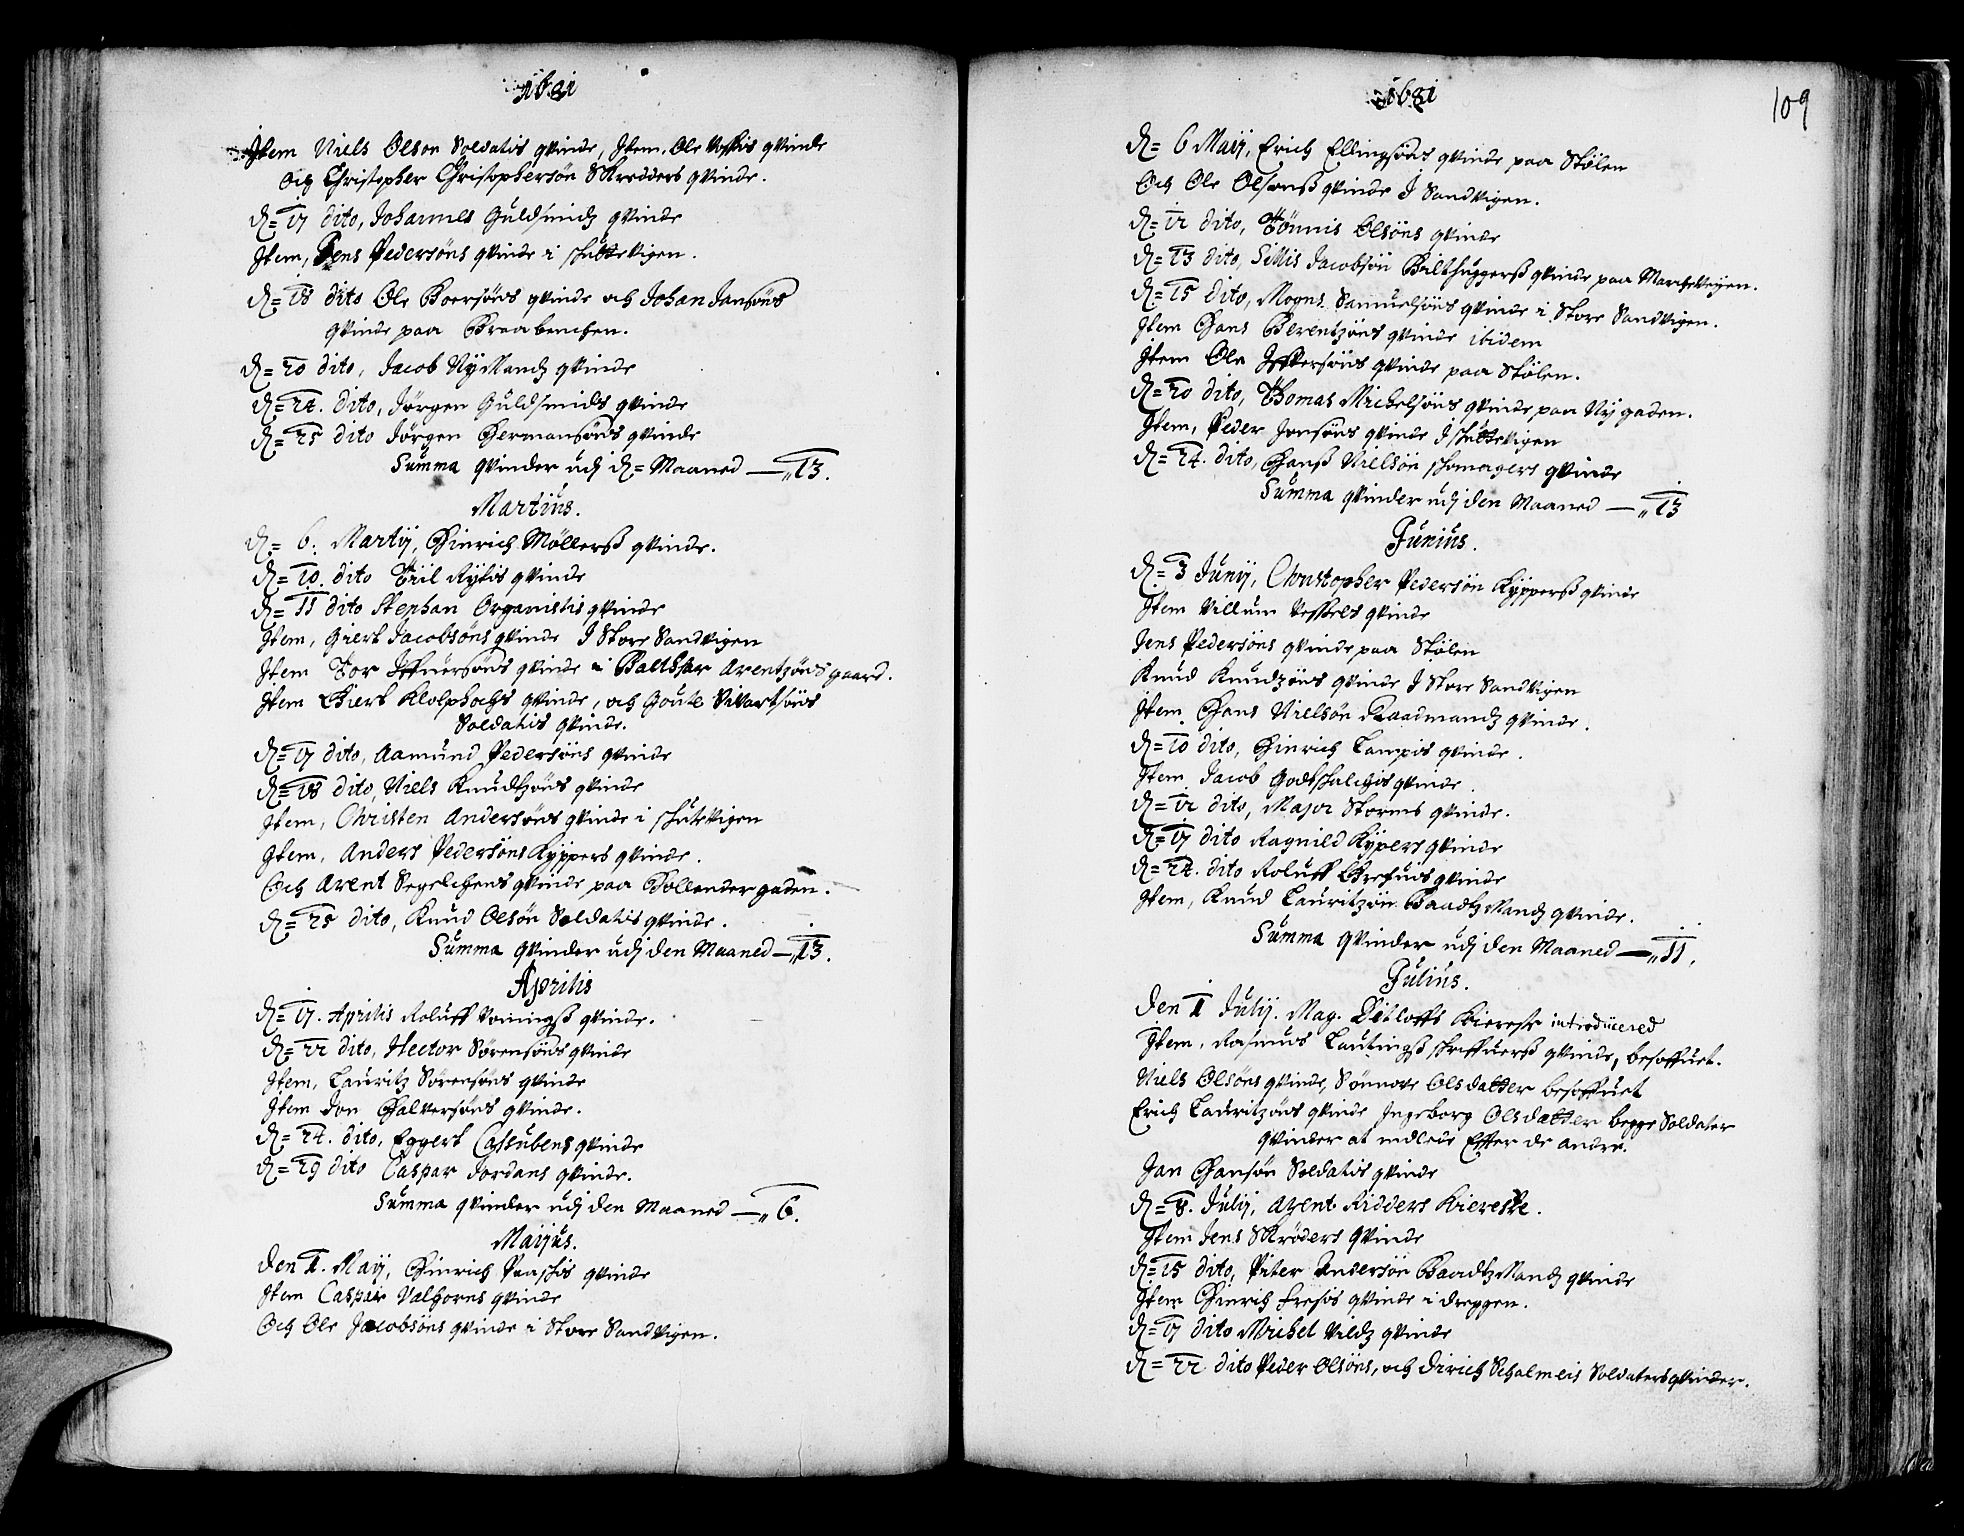 1681
Item Niels Olson Soldatis qvinde, Item, Ole qvinde
Och Christopher Christophersön Skredders qvinde.
D= 17 dito, Johannes Guldsmidz qvinde
Item, Jens Pedersöns qvinde i skuttevigen.
D= 18 dito Ole Boersöns qvinde och Johan Jansöns
qvinde paa Braabenchen.
D= 20 dito, Jacob NyMandz qvinde
D= 24. dito, Jörgen Guldsmids qvinde
D= 25 dito Jörgen Hermansöns qvinde
Summa qvinder udj D= Maaned — 13.
Martius.
D= 6. Martij, Hinrich Möllerß qvinde.
D= 10. dito qvinde
D= 11 dito Stephan Organistis qvinde
Item, Giert Jacobsöns qvinde J Store Sandvigen
Item Tor qvinde i Balthsar Arentzöns gaard.
Item Giert qvinde, och Goute Sivartsöns
Soldatis qvinde.
D= 17 dito, Aamund Pedersöns qvinde
D= 18 dito, Niels Knudtzöns qvinde
Item, Christen Andersöns qvinde i skutevigen
Item, Anders Pedersöns Kyppers qvinde.
Och Arent Segelchens qvinde paa Hollendergaden.
D= 25 dito, Knud Olsön Soldatis qvinde.
Summa qvinder udj den Maaned — 13.
Aprilis
D= 17. Aprilis Roluff qvinde.
D= 22 dito, Hector Sörensöns qvinde
Item, Lauritz Sörensöns qvinde
Item Jon Halversöns qvinde.
D= 24. dito, Eggert Cassubens qvinde
D= 29 dito Caspar Jordans qvinde.
Summa qvinder udj den Maaned — 6.
Maijus.
Den 1. Maij, Hinrich qvinde
Item Caspar Valhorns qvinde
Och Ole Jacobsöns qvinde i Store Sandvigen.
1681
109
D= 6 Maij, Erich Ellingsöns qvinde paa Stölen
Och Ole Olsonß qvinde J Sandvigen.
D= 12 dito, Tönnis Olsöns qvinde
D= 13 dito, Jacobsön Bilthuggerß qvinde paa Marchevejen.
D= 15 dito, Mogns Samuelsöns qvinde i Store Sandvigen.
Item Hans Berentzöns qvinde ibidem
Item Ole qvinde paa Stölen.
D= 20 dito, Thomas Michelsöns qvinde paa Nygaden.
Item, Peder Jonsöns qvinde J skuttevigen
D= 24. dito, Hanß Nielsön skomagers qvinde
Summa qvinder udj den Maaned — 13
Junius.
D= 3 Junij, Christopher Pedersön Kypperß qvinde
Item Villum Vessels qvinde
Jens Pedersöns qvinde paa Stölen
Knud Knudzöns qvinde J Store Sandvigen
Item Hans Nielsön Raadmandz qvinde.
D= 10 dito, Hinrich Lampis qvinde.
Item Jacob Godtskalchis qvinde.
D= 12 dito, Major Storms qvinde.
D= 17 dito Ragnild Kypers qvinde
D= 24. dito Roluff qvinde
Item, Knud Lauritzön BaadtzMandz qvinde.
Summa qvinder udj den Maaned — 11.
Julius.
Den 1 Julij. Mag. Ditloffs Kiereste introducered
Item, Rasmus qvinde, besoffuet.
Niels Olsöns qvinde, Sönnove Olsdatter besoffuet
Erich Lauritzöns qvinde Ingeborg Olsdatter begge Soldater
qvinder at indlede Effter de andre.
Jan Hansön Soldatis qvinde
D= 8. Julij, Arent Ridders Kiereste.
Item Jens Skröders qvinde
D= 15 dito, Piter Andersön BaadtzMandz qvinde
Item Hinrich qvinde i dreggen.
D= 17 dito Michel Vildz qvinde
D= 22 dito Peder Olsöns, och Dirich Schalmeis Soldaters qvinder.